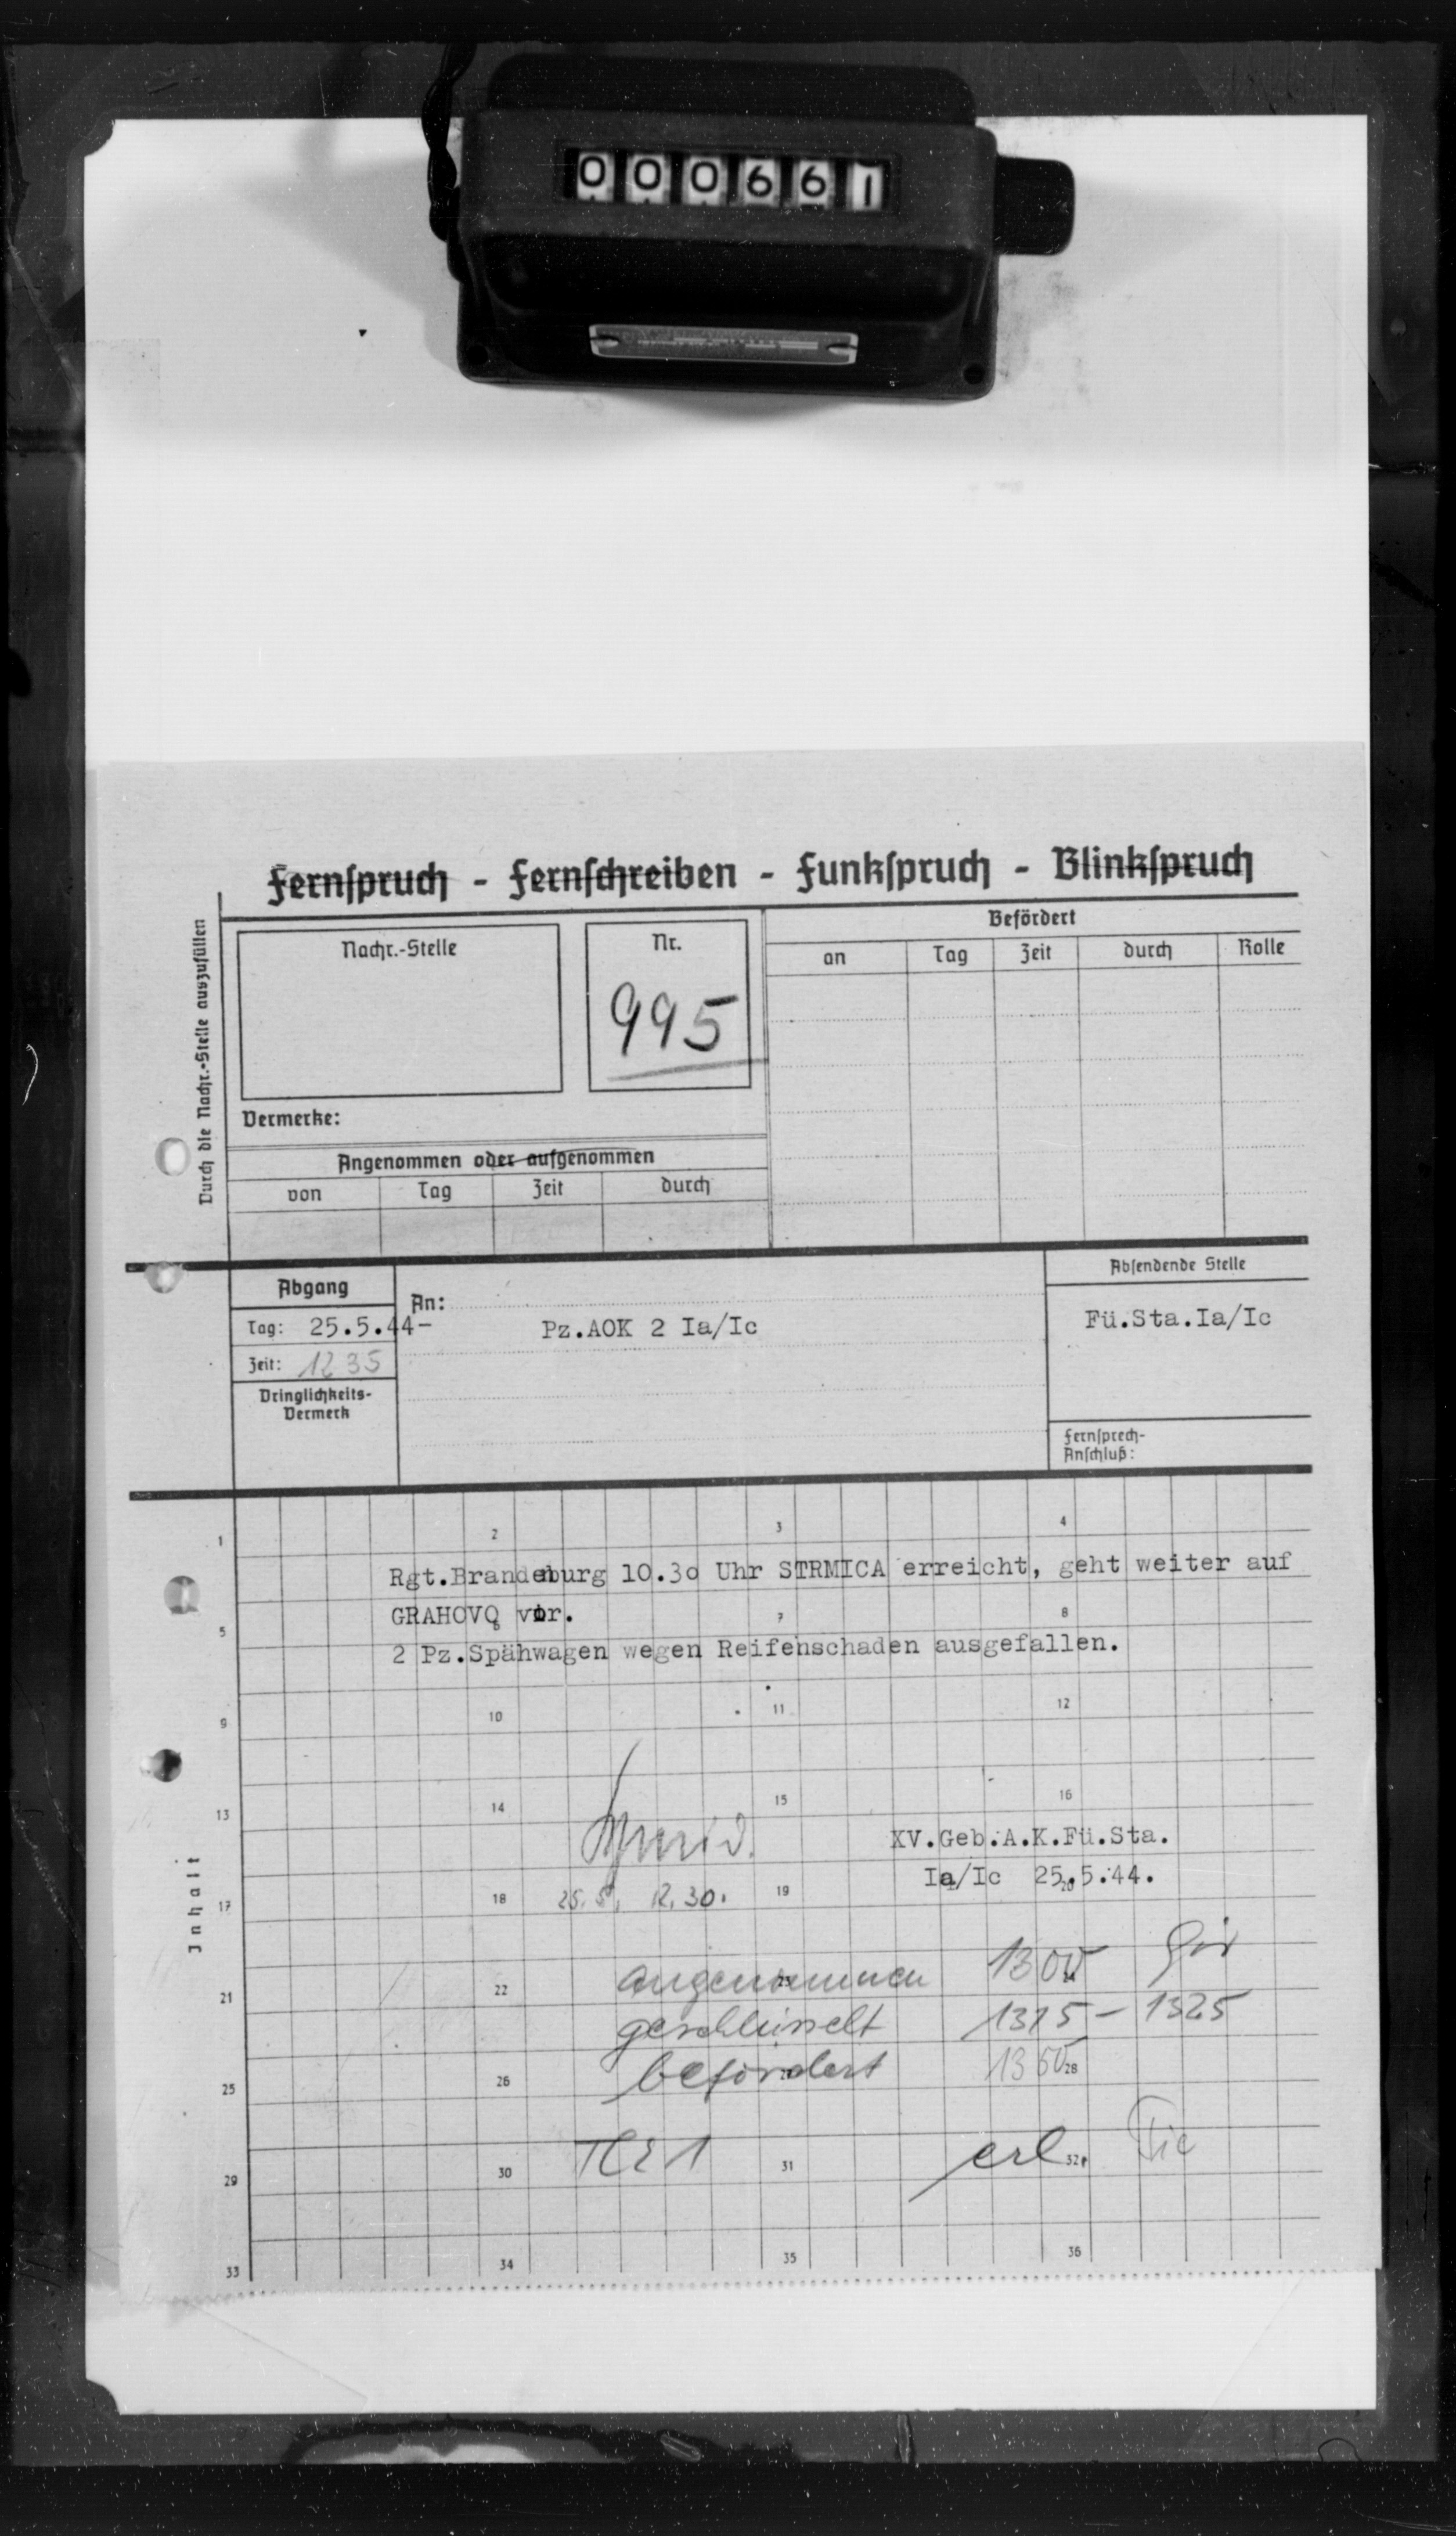 000661
Fernspruch - Fernschreiben - Funkspruch - Blinkspruch
Durch die Nachr.-Stelle auszufüllen
Nachr.-Stelle
Nr.
995
Befördert
an Tag Zeit durch Rolle
Vermerke:
Angenommen oder aufgenommen
von Tag Zeit durch
Abgang
Tag: 25.5.44-
Zeit: 1235
Dringlichkeits-
Vermerk
An:
Pz.AOK 2 Ia/Ic
Absendende Stelle
Fü.Sta.Ia/Ic
Fernsprech-
Anschluß:
1 2 3 4
Rgt.Brandenburg 10.30 Uhr STRMICA erreicht, geht weiter auf
GRAHOVO vor.
5 7 8
2 Pz.Spähwagen wegen Reifenschaden ausgefallen.
9 10 11 12
13 14 15 16
XV.Geb.A.K.Fü.Sta.
Ia/Ic 25.5.44.
Inhalt
17 18 25.5. 12.30. 19 20
angenommen 1300
21 22
geschlüsselt 1315 - 1325
befördert 1350
25 26 28
erl.
29 30 31 32
33 34 35 36